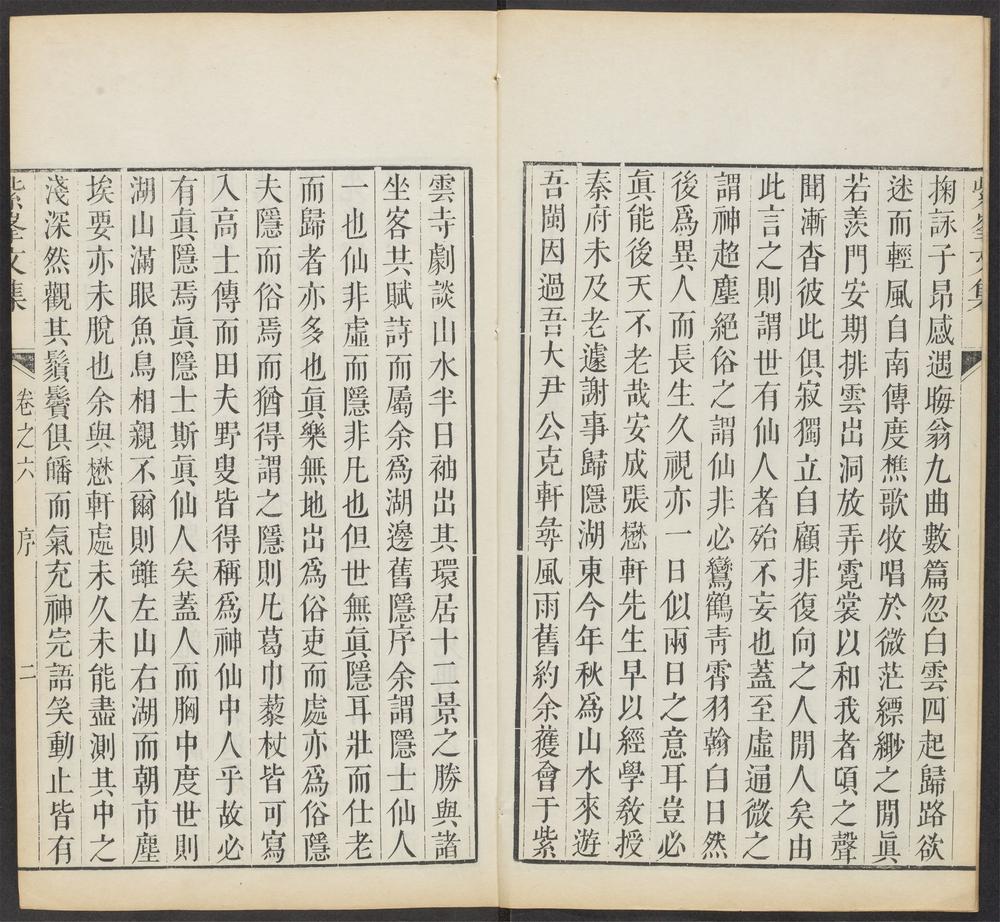 掬詠子昂感遇晦翁九曲數篇忽白雲四起歸路欲
迷而輕風自南傳度樵歌牧唱於微茫縹緲之閒眞
若羨門安期排雲出洞放弄霓裳以和我者頃之聲
聞漸杳彼此俱寂獨立自顧非復向之人閒人矣由
此言之則謂世有仙人者殆不妄也蓋至虛通微之
謂神超塵絕俗之謂仙非必鸞鶴靑霄羽翰白日然
後爲異人而長生久視亦一日似兩日之意耳豈必
眞能後天不老哉安成張懋軒先生早以經學敎授
秦府未及老遽謝事歸隱湖東今年秋爲山水來遊
吾閩因過吾大尹公克軒彝風雨舊約余獲會于紫
雲寺劇談山水半日袖出其環居十二景之勝與諸
坐客共賦詩而屬余爲湖邊舊隱序余謂隱士仙人
一也仙非虛而隱非凡也但世無眞隱耳壯而仕老
而歸者亦多也眞樂無地出爲俗吏而處亦爲俗隱
夫隱而俗焉而猶得謂之隱則凡葛巾藜杖皆可寫
入高士傳而田夫野叟皆得稱爲神仙中人乎故必
有眞隱焉眞隱士斯眞仙人矣蓋人而胸中度世則
湖山滿眼魚鳥相親不爾則雖左山右湖而朝市塵
埃要亦未脫也余與懋軒處未久未能盡測其中之
淺深然觀其鬚鬢俱皤而氣充神完語笑動止皆有
紫峯文集 卷之六 序 二